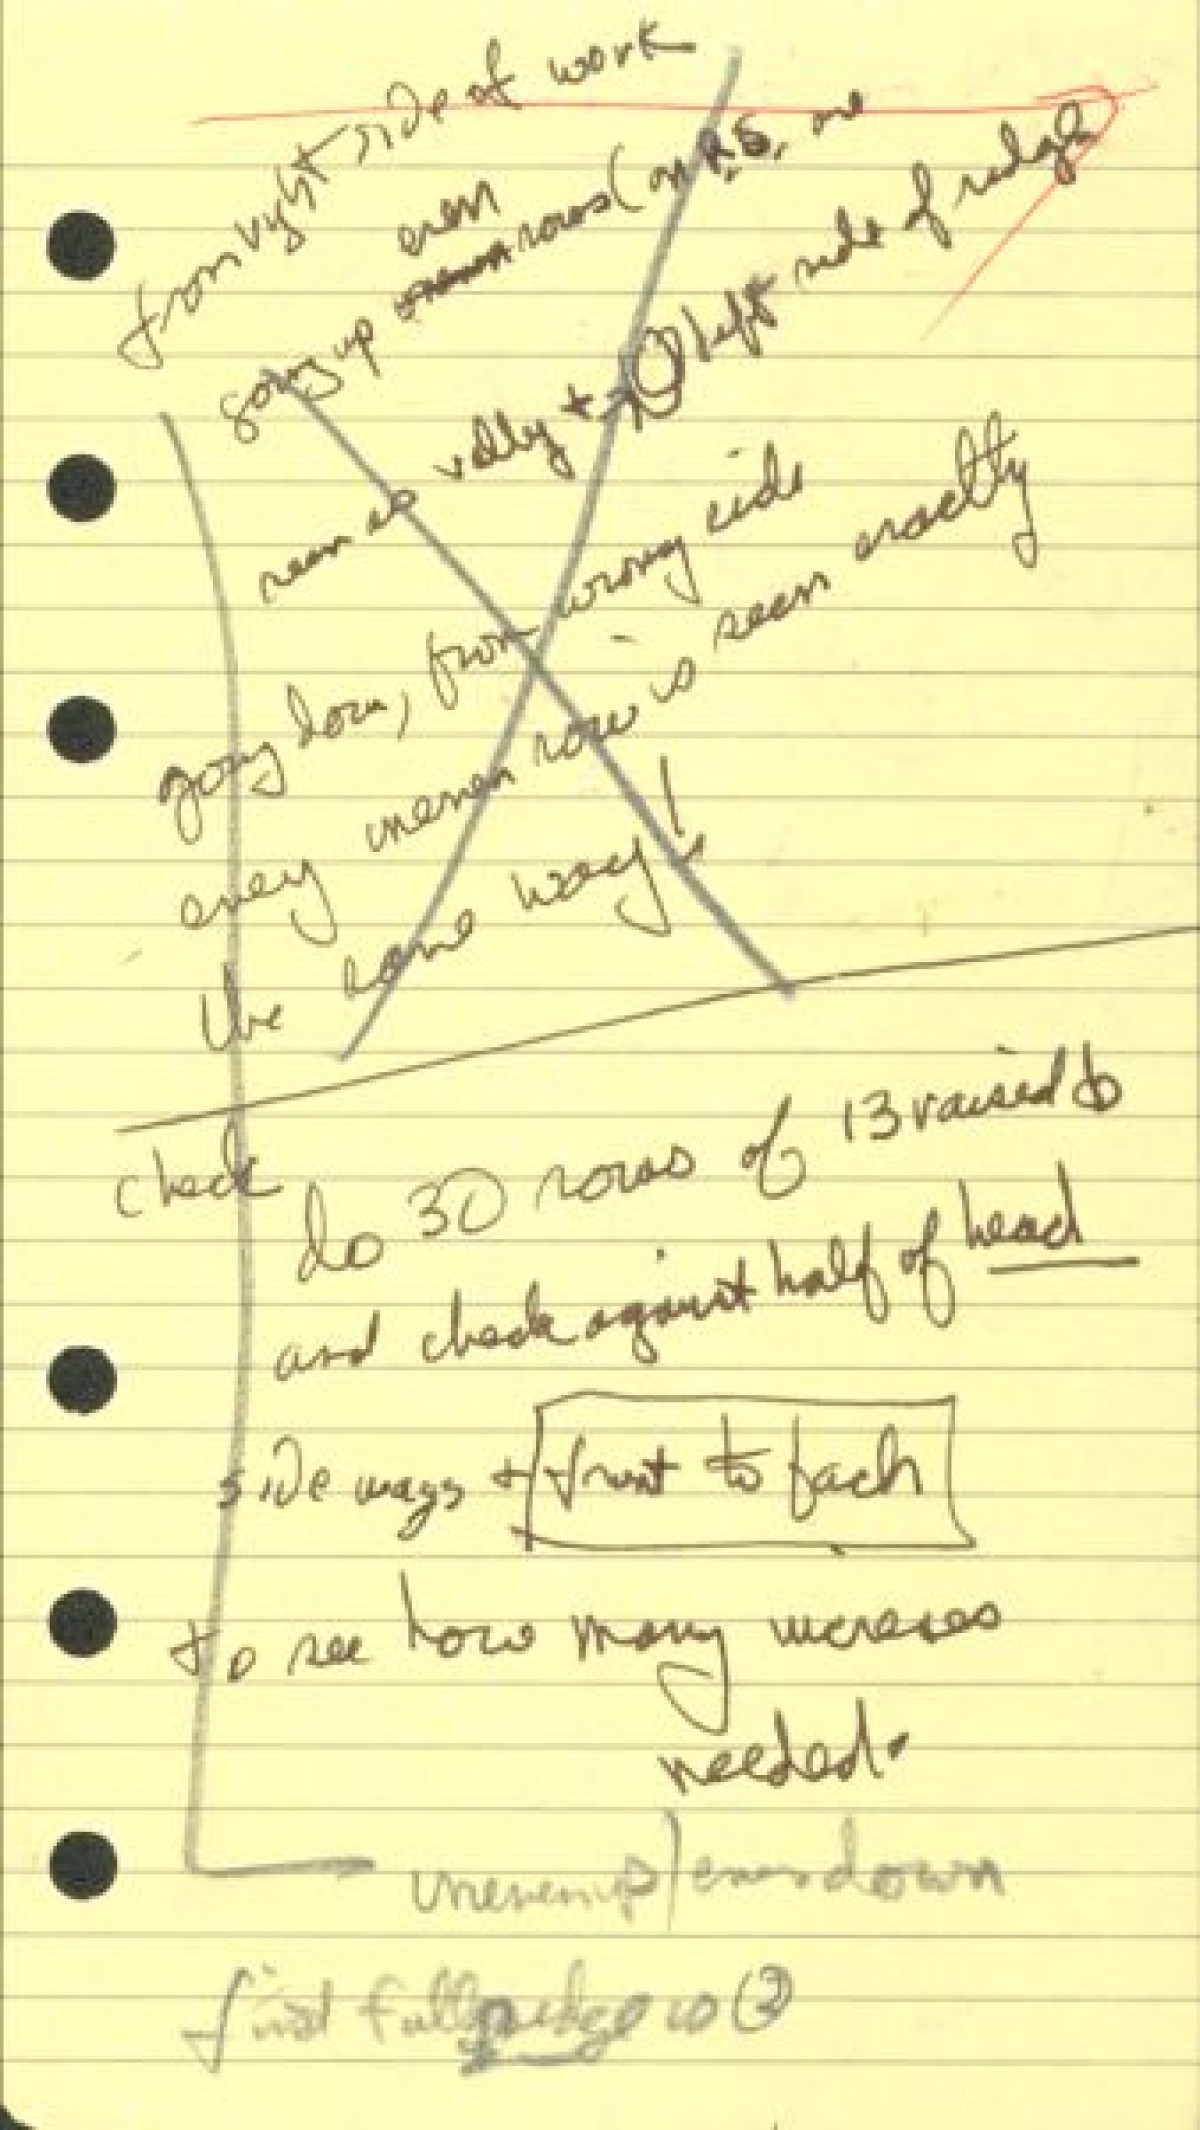 from right side of work
even
going up rows (on R.S. are
seen as valley + left side of ridge
going down, from wrong side
every uneven row is seen exactly
the same way!
check
do 30 rows of 13 raised to
and check against half of head
side ways + front to bach
to see how many increses
needed.
uneven up/even down
first full ridge is 3